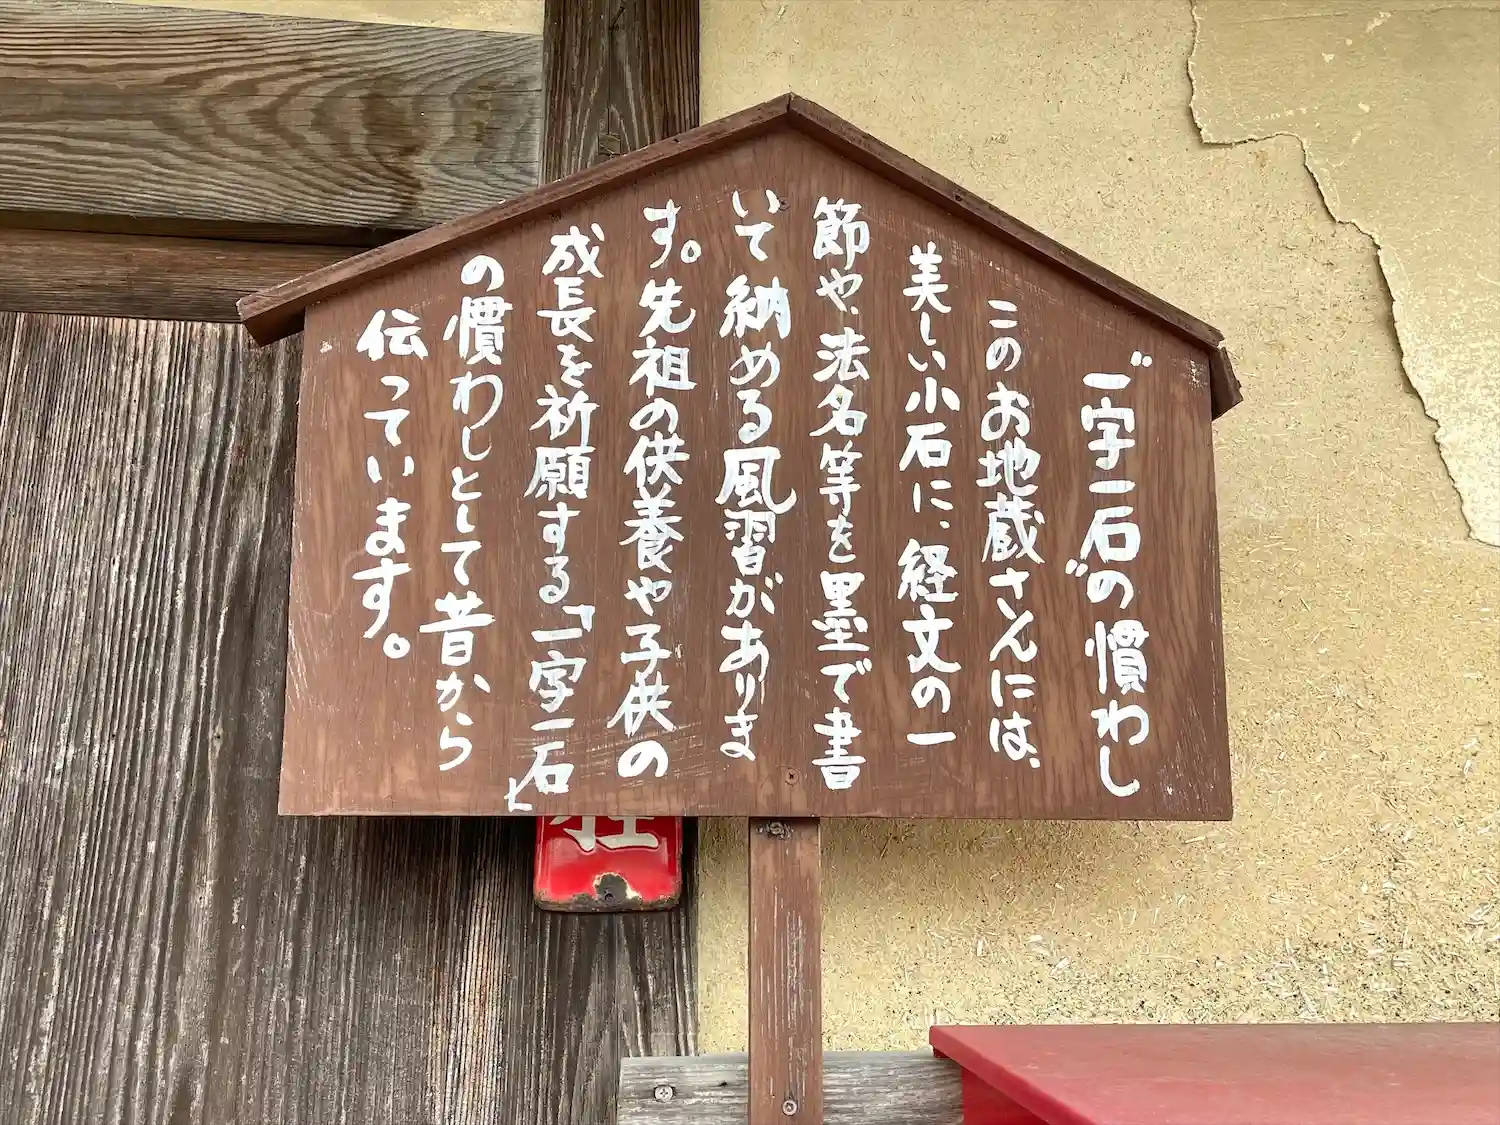 "一字一石"の慣わし
このお地蔵さんには、
美しい小石に、経文の一
節や、法名等を墨で書
いて納める風習がありま
す。先祖の供養や子供の
成長を祈願する「一字一石」
の慣わしとして昔から
伝っています。